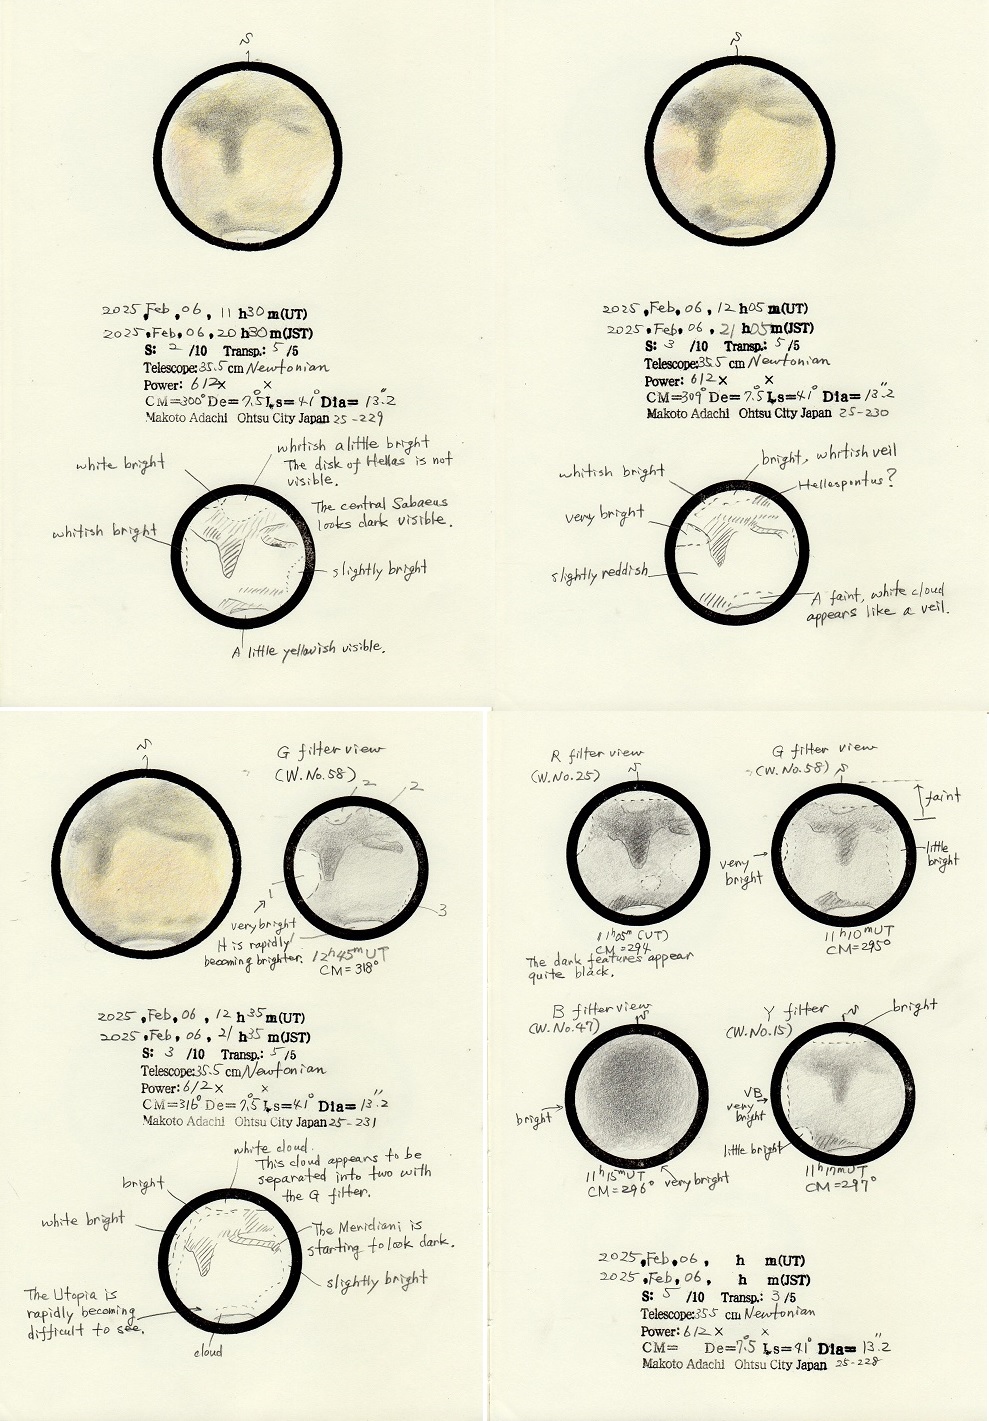 S
2025, Feb, 06, 11 h30 m(UT)
2025, Feb, 06, 20 h30 m(JST)
S: 2 /10 Transp.: 5 /5
Telescope: 35.5 cm Newtonian
Power: 612× ×
CM=300° De=7.5° Ls=41° Dia= 13.″2
Makoto Adachi Ohtsu City Japan 25-229
white bright
whitish a little bright
The disk of Hellas is not
visible.
The central Sabaeus
looks dark visible.
whitish bright
slightly bright
A little yellowish visible.
S
2025, Feb, 06, 12 h05 m(UT)
2025, Feb, 06, 21 h05 m(JST)
S: 3 /10 Transp.: 5 /5
Telescope: 35.5 cm Newtonian
Power: 612× ×
CM=309° De=7.5° Ls=41° Dia= 13.″2
Makoto Adachi Ohtsu City Japan 25-230
bright, whitish veil
whitish bright
Hellespontus?
very bright
slightly reddish
A faint, white cloud
appears like a veil.
S
G filter view
(W.No.58)
2
2
1
3
very bright
It is rapidly
becoming brighter.
12h45m UT
CM=318°
2025, Feb, 06, 12 h35 m(UT)
2025, Feb, 06, 21 h35 m(JST)
S: 3 /10 Transp.: 5 /5
Telescope: 35.5 cm Newtonian
Power: 612× ×
CM=316° De=7.5° Ls=41° Dia= 13.″2
Makoto Adachi Ohtsu City Japan 25-231
white cloud.
This cloud appears to be
separated into two with
the G filter.
bright
white bright
The Meridiani is
starting to look dark.
slightly bright
The Utopia is
rapidly becoming
difficult to see.
cloud
R filter view
(W.No.25)
S
G filter view
(W.No.58)
S
faint
very
bright
little
bright
11h05m (UT)
CM=294
The dark features appear
quite black.
11h10m UT
CM=295°
B filter view
(W.No.47)
S
Y filter
(W.No.15)
S
bright
bright
VB
very
bright
little bright
11h15m UT
CM=296°
very bright
11h17m UT
CM=297°
2025, Feb, 06, h m(UT)
2025, Feb, 06, h m(JST)
S: 5 /10 Transp.: 3 /5
Telescope: 35.5 cm Newtonian
Power: 612× ×
CM= De=7.5° Ls=41° Dia= 13.″2
Makoto Adachi Ohtsu City Japan 25-228